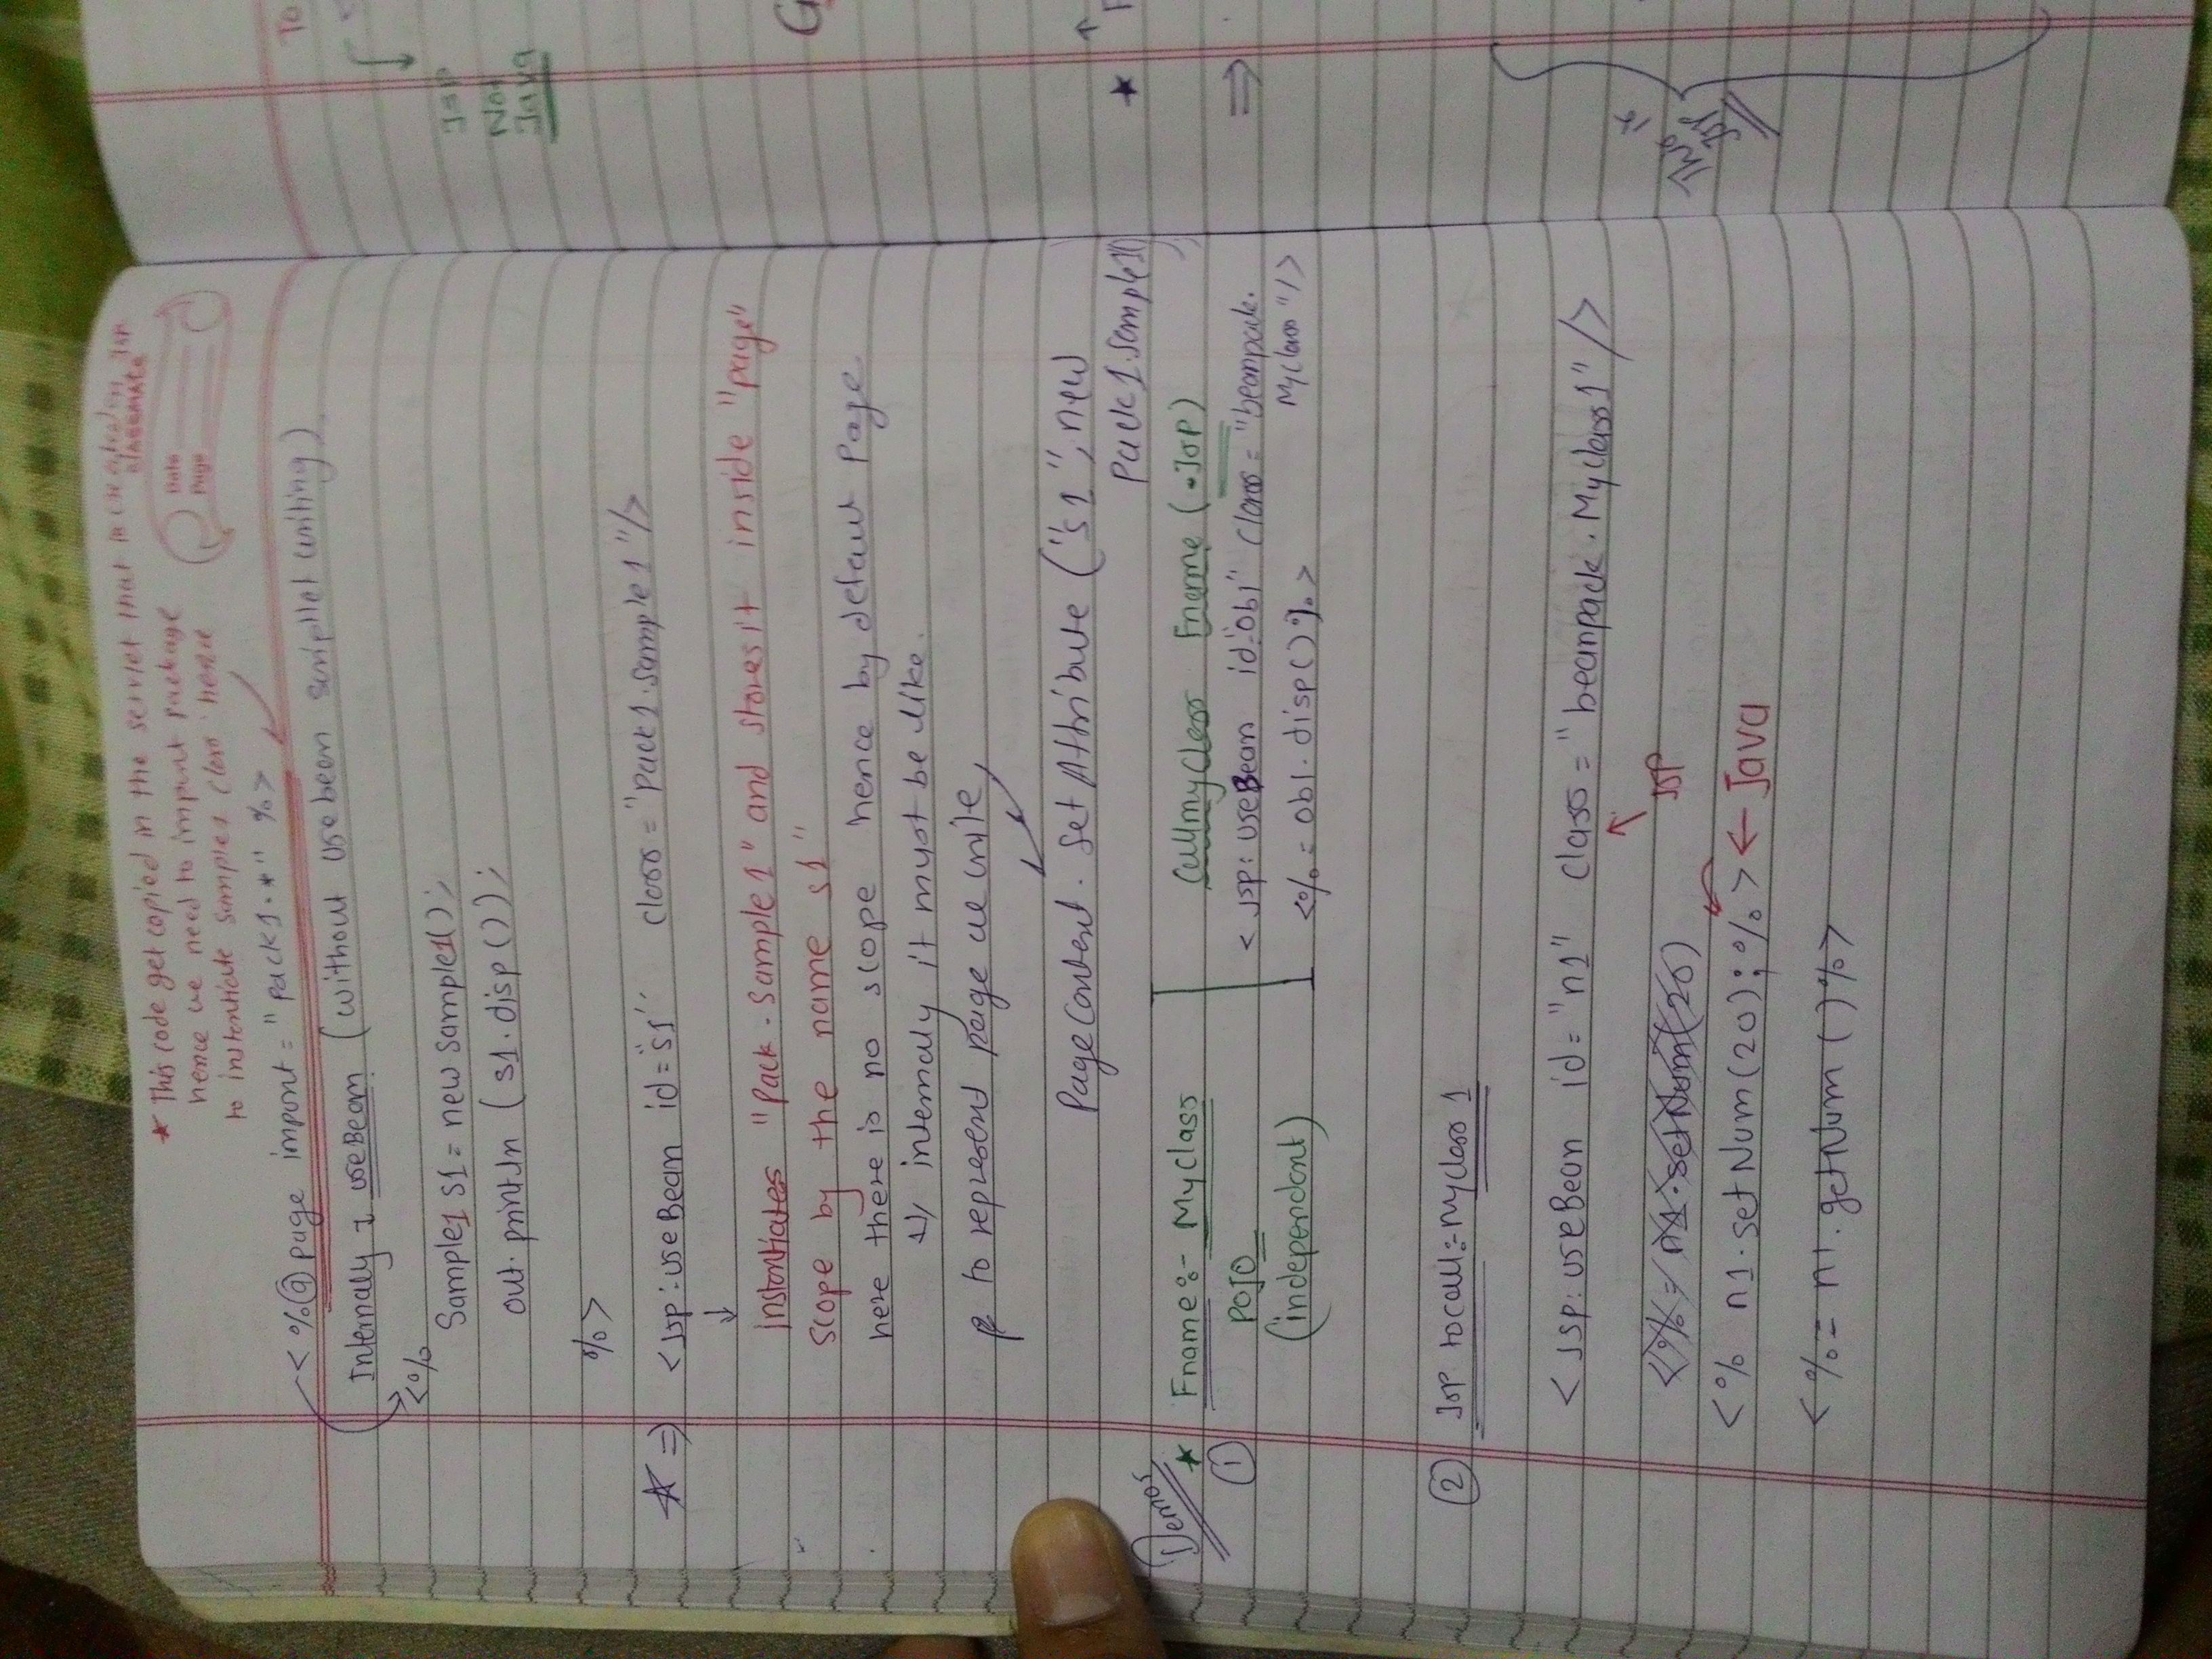 ★ This code get copied in the servlet that is created on JSP
classmate
hence we need to import package
Date
Page
to instentiate sample1 class hence
<%@ page import = "pack1.*" %>
Internaly I useBean (without usebean scripllet writing)
<%
Sample1 s1 = new sample1();
out.println (s1.disp());
%>
★ ⇒ <jsp:useBean id="s1" class="pack1.sample1"/>
↓
instantiates "pack.sample1" and stores it inside "page"
scope by the name s1"
here there is no scope hence by defaut page.
internaly it must be like.
to represent page we write,
PageContext.SetAttribute ("s1", new
pack1.sample1()
)
Demos
★ Fname:- MyClass
Callmyclass Fname (.JSP)
① POJO
<jsp:useBean id="ob1" class="beanpack.
MyClass"/>
(independent)
<%= ob1.disp()%>
② JSP to call:- Myclass1
<jsp:useBean id="n1" class="beanpack.Myclass1"/>
↑ JSP
<%= n1.setNum(20)
<% n1.setNum(20);%> ← Java
<%= n1.getNum()%>
To
JSP
No
Java
G
★
⇒
This is
JSP